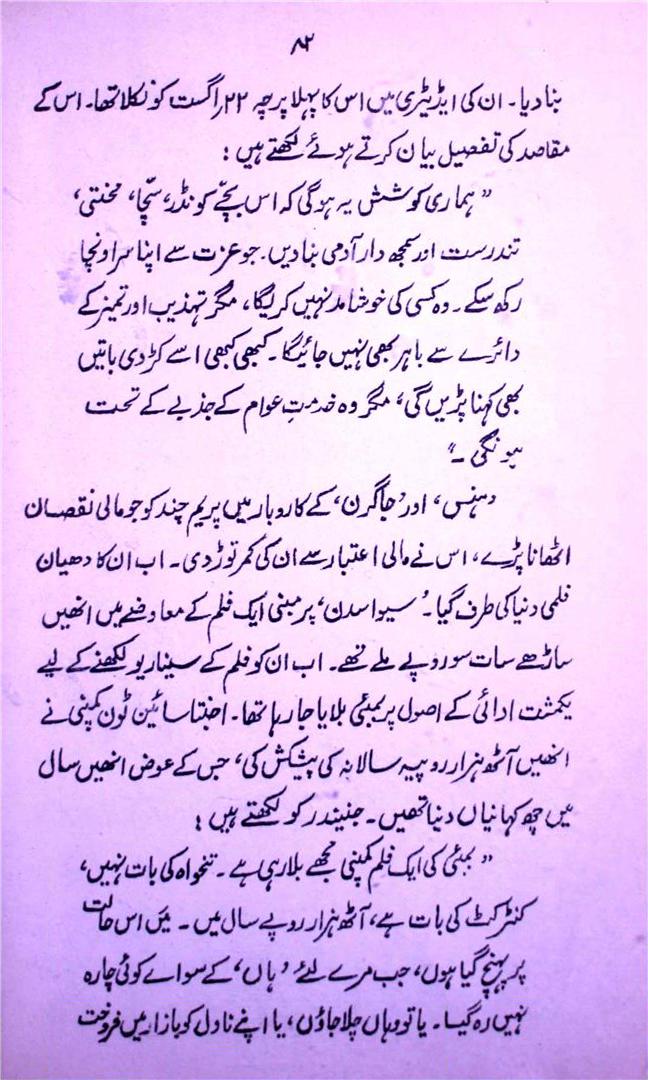 ۸۲
بنا دیا۔ ان کی ایڈیٹری میں اس کا پہلا پرچہ ۲۲؍اگست کو نکلا تھا۔ اس کے
مقاصد کی تفصیل بیان کرتے ہوئے لکھتے ہیں :
”ہماری کوشش یہ ہوگی کہ اس بچّے کو نڈر، سچّا، محنتی،
تندرست اور سمجھ دار آدمی بنا دیں۔ جو عزت سے اپنا سر اونچا
رکھ سکے۔ وہ کسی کی خوشامد نہیں کریگا، مگر تہذیب اور تمیز کے
دائرے سے باہر بھی نہیں جائیگا۔ کبھی کبھی اسے کڑوی باتیں
بھی کہنا پڑیں گی، مگر وہ خدمتِ عوام کے جذبے کے تحت
ہونگی۔“
’ہنس‘، اور ’جاگرن‘، کے کاروبار میں پریم چند کو جو مالی نقصان
اٹھانا پڑے، اس نے مالی اعتبار سے ان کی کمر توڑ دی۔ اب ان کا دھیان
فلمی دنیا کی طرف گیا۔ ’سیوا سدن‘ پر مبنی ایک فلم کے معاوضے میں انھیں
ساڑھے سات سو روپے ملے تھے۔ اب ان کو فلم کے سیناریو لکھنے کے لیے
یکمشت ادائی کے اصول پر بمبئی بلایا جا رہا تھا۔ اجنتا سائین ٹون کمپنی نے
انھیں آٹھ ہزار روپیہ سالانہ کی پیشکش کی، جس کے عوض انھیں سال
میں چھ کہانیاں دینا تھیں۔ جنیندر کو لکھتے ہیں :
”بمبئی کی ایک فلم کمپنی مجھے بلا رہی ہے۔ تنخواہ کی بات نہیں،
کنٹرکٹ کی بات ہے، آٹھ ہزار روپے سال میں۔ میں اس حالت
پر پہنچ گیا ہوں، جب مرے لئے ’ہاں‘ کے سواے کوئی چارہ
نہیں رہ گیا۔ یا تو وہاں چلا جاؤں، یا اپنے ناول کو بازار میں فروخت